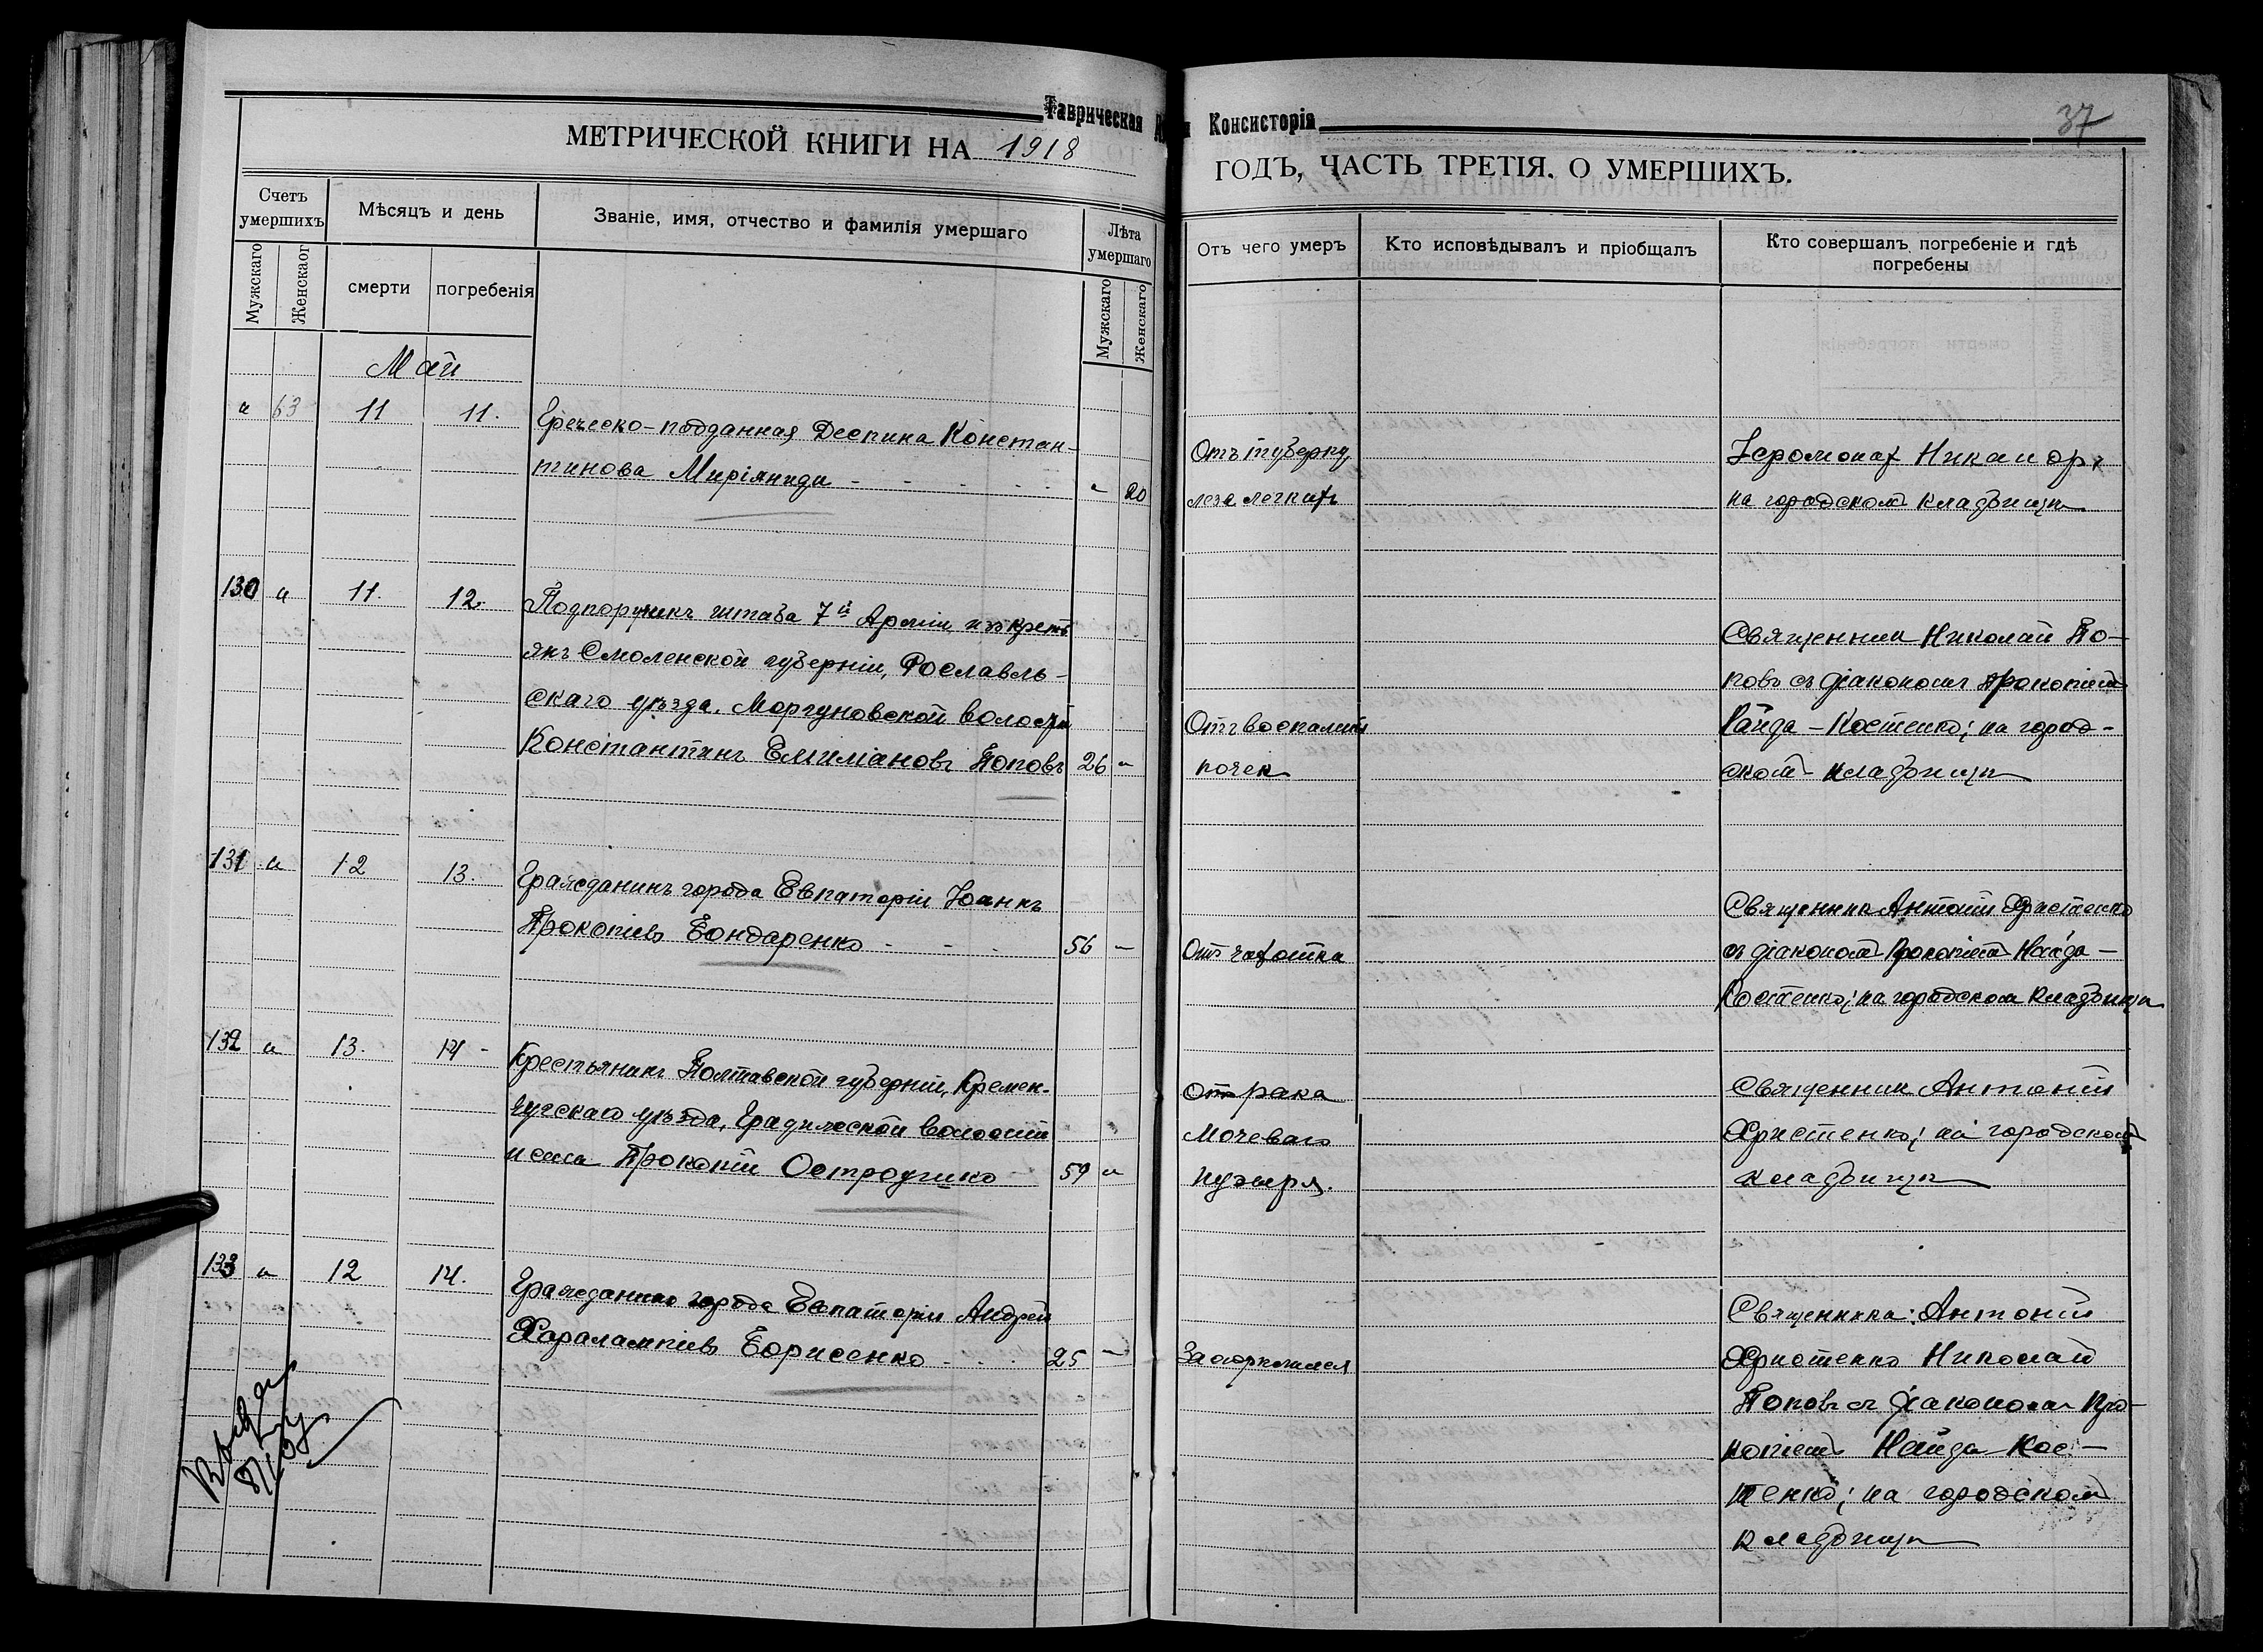 Таврическая
Консисторія
37
МЕТРИЧЕСКОЙ КНИГИ НА 1918
ГОДЪ, ЧАСТЬ ТРЕТІЯ. О УМЕРШИХЪ.
Счетъ умершихъ
Мужскаго
Женскаог
Мѣсяцъ и день
смерти
погребенія
Званіе, имя, отчество и фамилія умершаго
Лѣта умершаго
Мужскаго
Женскаго
Отъ чего умеръ
Кто исповѣдывалъ и пріобщалъ
Кто совершалъ погребеніе и гдѣ
погребены
Май
" 63 11 11.
Греческо-подданная Деспина Констан-
тинова Миріяниди - - - - - " 20
Отъ туберку
леза легкихъ
Іеромонах Никаноръ
на городском кладбищѣ
130 " 11. 12.
Подпоручикъ штаба 7й Арміи, изъ крест
янъ Смоленской губерніи, Рославль-
скаго уѣзда, Моргуновской волости
Константинъ Емиліановъ Поповъ 26 "
Отъ воспаленія
почек
Священник Николай По-
повъ съ діакономъ Прокопіем
Найда-Костенко; на город-
ском кладбищѣ
131 " 12 13.
Гражданинъ города Евпаторіи Іоаннъ
Прокопіевъ Бондаренко - - - 56 "
Отъ чахотки
Священникъ Антоній Христенко
съ діаконом Прокопіем Найда-
Костенко; на городском кладбищѣ
132 " 13. 14 -
Крестьянинъ Полтавской губерніи, Кремен-
чугскаго уѣзда, Градижской волости
и села Прокопій Остроушко 59 "
От рака
мочеваго
пузыря.
Священник Антоній
Христенко; на городском
кладбищѣ
133 " 12 14.
Гражданинъ города Евпаторіи Андрей
Харалампіевъ Борисенко - . . . 25 "
Застрѣлился
Священники: Антоній
Христенко Николай
Поповъ съ діакономъ Про-
копіемъ Найда-Кос-
тенко; на городском
кладбищѣ